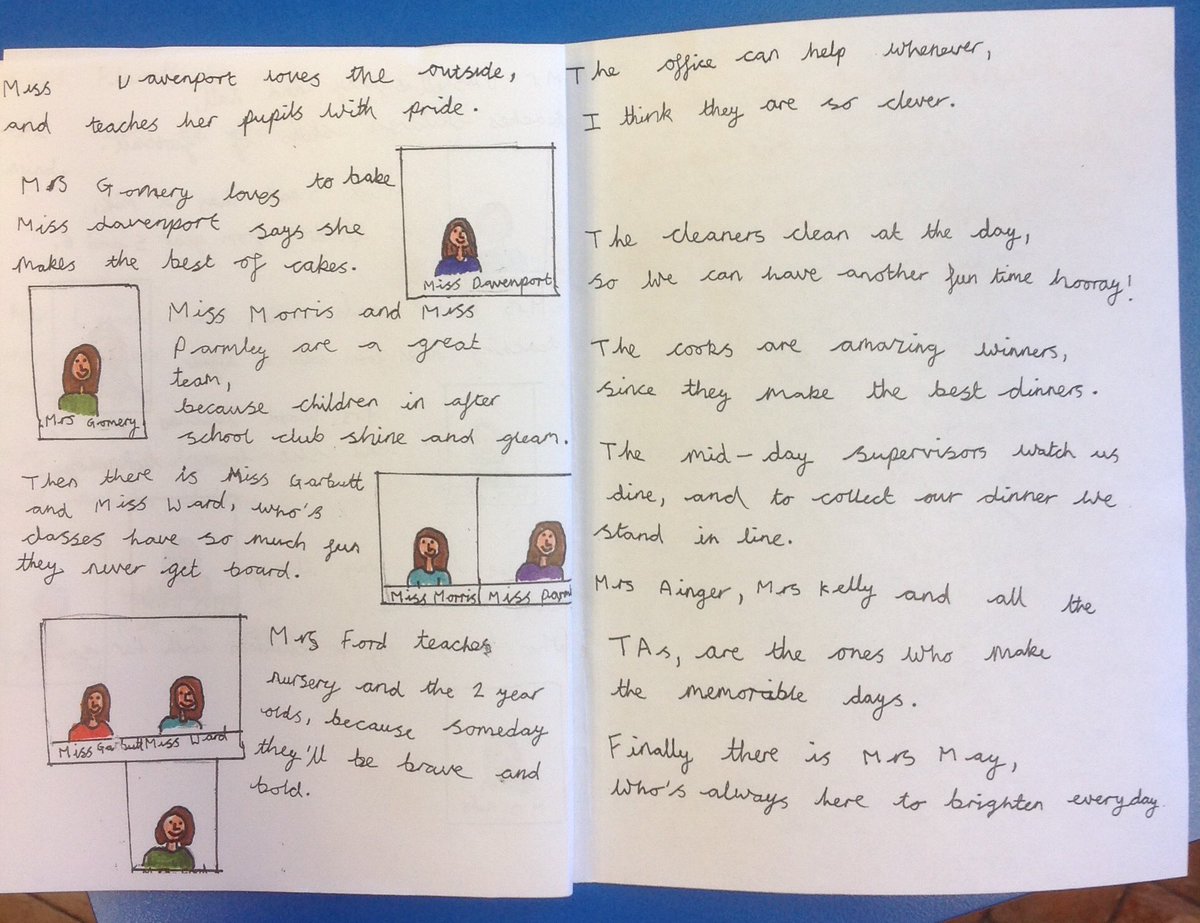 Miss Davenport loves the outside,
and teaches her pupils with pride.
Mrs Gomery loves to bake
Miss davenport says she
makes the best of cakes.
Miss Davenport
Miss Morris and Miss
Parmley are a great
team,
because children in after
school club shine and gleam.
Mrs Gomery
Then there is Miss Garbutt
and Miss Ward, who's
classes have so much fun
they never get board.
Miss Morris Miss
Mrs Ford teaches
nursery and the 2 year
olds, because someday
they'll be brave and
bold.
Miss Garbutt Miss Ward
The office can help whenever,
I think they are so clever.
The cleaners clean at the day,
so we can have another fun time hooray!
The cooks are amazing winners,
since they make the best dinners.
The mid-day supervisors watch us
dine, and to collect our dinner we
stand in line.
Mrs Ainger, Mrs Kelly and all the
TAs, are the ones who make
the memorible days.
Finally there is Mrs May,
who's always here to brighten everyday.